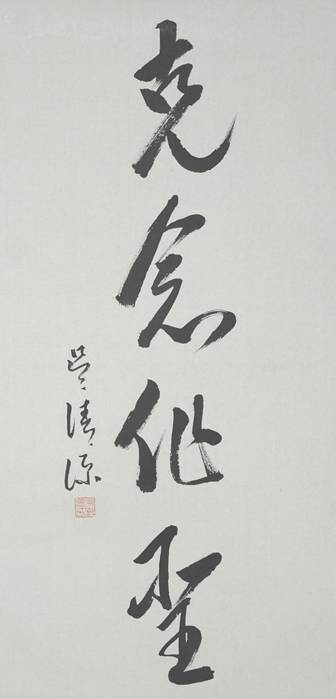 克念作聖
吳清源